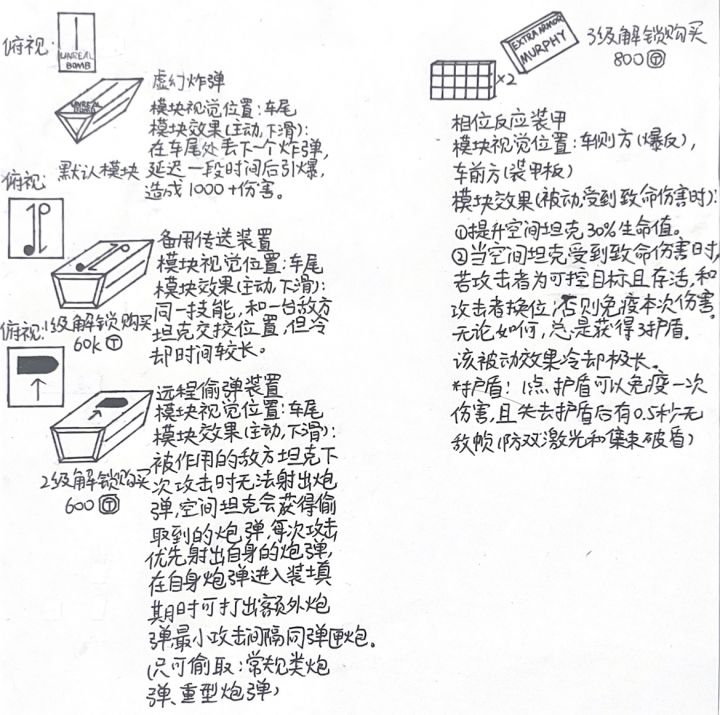 俯视:
UNREAL
BOMB
UNREAL
BOMB
虚幻炸弹
模块视觉位置:车尾
模块效果(主动,下滑):
在车尾处丢下一个炸弹,
延迟一段时间后引爆,
造成1000+伤害。
默认模块
俯视:
备用传送装置
模块视觉位置:车尾
模块效果(主动,下滑):
同一技能,和一台敌方
坦克交换位置,但冷
却时间较长。
1级解锁购买
60k Ⓣ
俯视:
远程偷弹装置
模块视觉位置:车尾
模块效果(主动,下滑):
被作用的敌方坦克下
次攻击时无法射出炮
弹,空间坦克会获得偷
取到的炮弹,每次攻击
优先射出自身的炮弹,
在自身炮弹进入装填
期时可打出额外炮
弹,最小攻击间隔同弹匣炮。
(只可偷取:常规类炮
弹、重型炮弹)
2级解锁购买
600 Ⓣ
EXTRA ARMOR
MURPHY
×2
3级解锁购买
800 Ⓣ
相位反应装甲
模块视觉位置:车侧方(爆反),
车前方(装甲板)
模块效果(被动,受到致命伤害时):
①提升空间坦克30%生命值。
②当空间坦克受到致命伤害时,
若攻击者为可控目标且存活,和
攻击者换位,否则免疫本次伤害。
无论如何,总是获得3护盾.
该被动效果冷却极长。
*护盾:1点护盾可以免疫一次
伤害,且失去护盾后有0.5秒无
敌帧(防双激光和集束破盾)